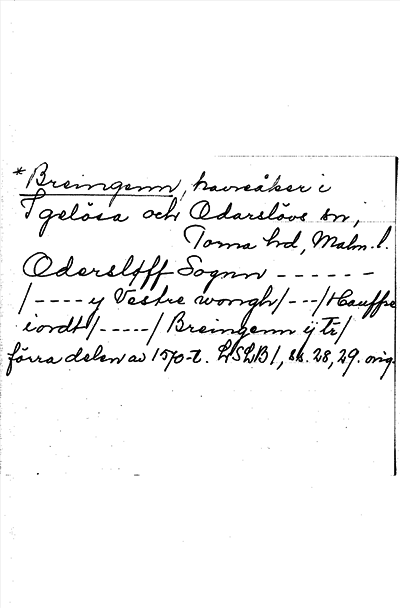 *Breingenn, havreåker i
Igelösa och Odarslövs sn,
Torna hd, Malm. l.
Oderslöff Sognn ------
/---- y Vestre wongh/---/Hauffre
iordt/-----/Breingenn ÿ Tr/
förra delen av 1570-t. LSLB 1, ss. 28, 29. orig.